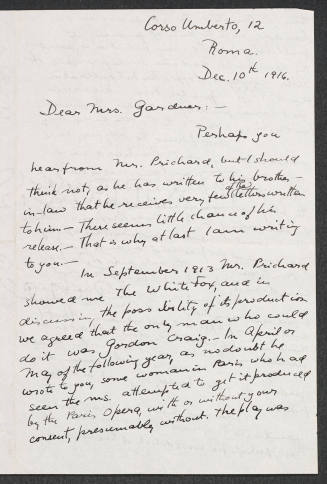 Corso Umberto, 12
Roma.
Dec. 10th 1916.
Dear Mrs. Gardner:—
Perhaps you
hear from Mr. Prichard, but I should
think not, as he has written to his brother-
in-law that he receives very few of the letters written
to him — There seems little chance of his
release. — That is why at last I am writing
to you —
In September 1913 Mr. Prichard
showed me The White Fox, and in
discussing the possibility of its production
we agreed that the only man who could
do it was Gordon Craig. — In April or
May of the following year, as no doubt he
wrote to you, some woman in Paris who had
seen the ms. attempted to get it produced
by the Paris Opera, with or without your
consent, presumably without. The play was